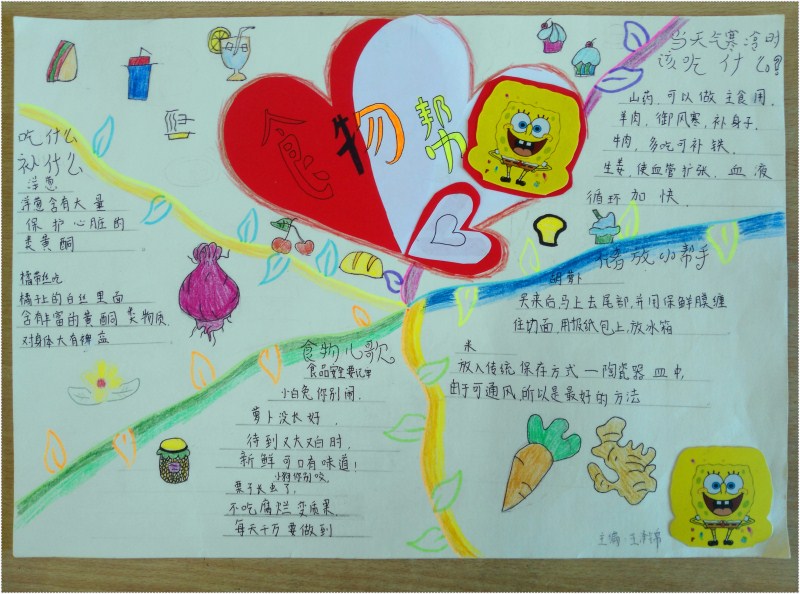 食物帮
吃什么
补什么
洋葱
洋葱含有大量
保护心脏的
类黄酮
橘带丝吃
橘子上的白丝里面
含有丰富的黄酮类物质，
对身体大有裨益
当天气寒冷时
该吃什么？
山药，可以做主食用。
羊肉，御风寒，补身子，
牛肉，多吃可补铁，
生姜，使血管扩张，血液
循环加快。
储放小帮手
胡萝卜
买来后，马上去尾部，并用保鲜膜缠
住切面，用报纸包上，放冰箱
米
放入传统保存方式一陶瓷器皿中，
由于可通风，所以是最好的方法
食物儿歌
食品安全要记牢
小白兔你别闹，
萝卜没长好，
待到又大又白时，
新鲜可口有味道！
小狗你别咬，
栗子长虫了，
不吃腐烂变质果，
每天千万要做到
主编：王